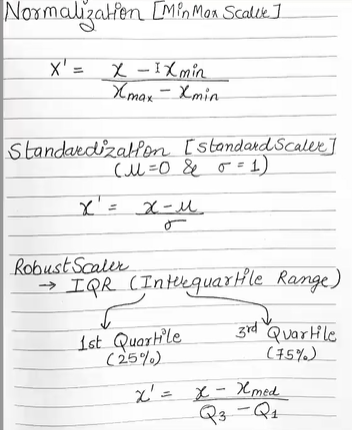 Normalization [MinMax Scaler]
X' = x - Ixmin / xmax - xmin
Standardization [StandardScaler]
(μ=0 & σ=1)
x' = x-μ / σ
RobustScaler
→ IQR (Interquartile Range)
1st Quartile 3rd Quartile
(25%) (75%)
x' = x - xmed / Q3 - Q1